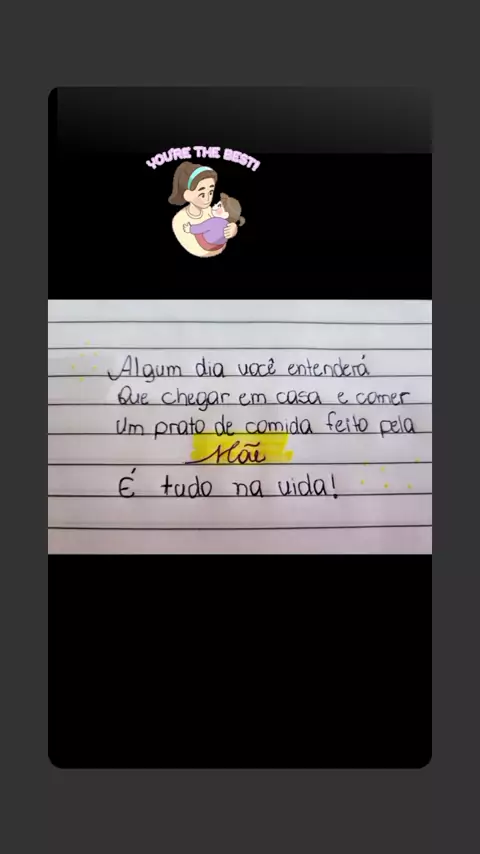 YOU'RE THE BEST!
Algum dia você entenderá
Que chegar em casa e comer
Um prato de comida feito pela
Mãe
É tudo na vida!